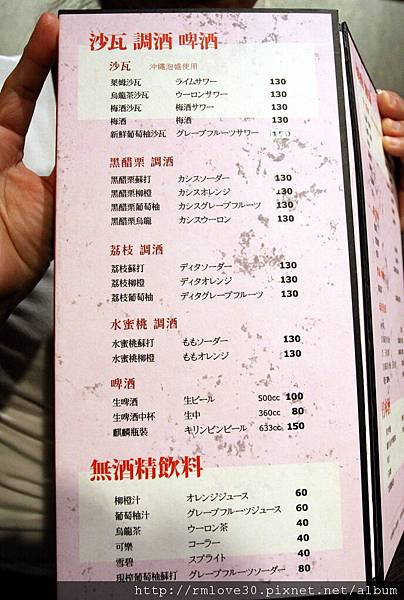 沙瓦 調酒 啤酒
沙瓦 沖繩泡盛使用
萊姆沙瓦 ライムサワー 130
烏龍茶沙瓦 ウーロンサワー 130
梅酒沙瓦 梅酒サワー 130
梅酒 梅酒 130
新鮮葡萄柚沙瓦 グレープフルーツサワー
黑醋栗 調酒
黑醋栗蘇打 カシスソーダー 130
黑醋栗柳橙 カシスオレンジ 130
黑醋栗葡萄柚 カシスグレープフルーツ 130
黑醋栗烏龍 カシスウーロン 130
荔枝 調酒
荔枝蘇打 ディタソーダー 130
荔枝柳橙 ディタオレンジ 130
荔枝葡萄柚 ディタグレープフルーツ 130
水蜜桃 調酒
水蜜桃蘇打 ももソーダー 130
水蜜桃柳橙 ももオレンジ 130
啤酒
生啤酒 生ビール 500cc 100
生啤酒中杯 生中 360cc 80
麒麟瓶裝 キリンビンビール 633cc 150
無酒精飲料
柳橙汁 オレンジジュース 60
葡萄柚汁 グレープフルーツジュース 60
烏龍茶 ウーロン茶 40
可樂 コーラー 40
雪碧 スプライト 40
現榨葡萄柚蘇打 グレープフルーツソーダー 80
http://rmlove30.pixnet.net/album